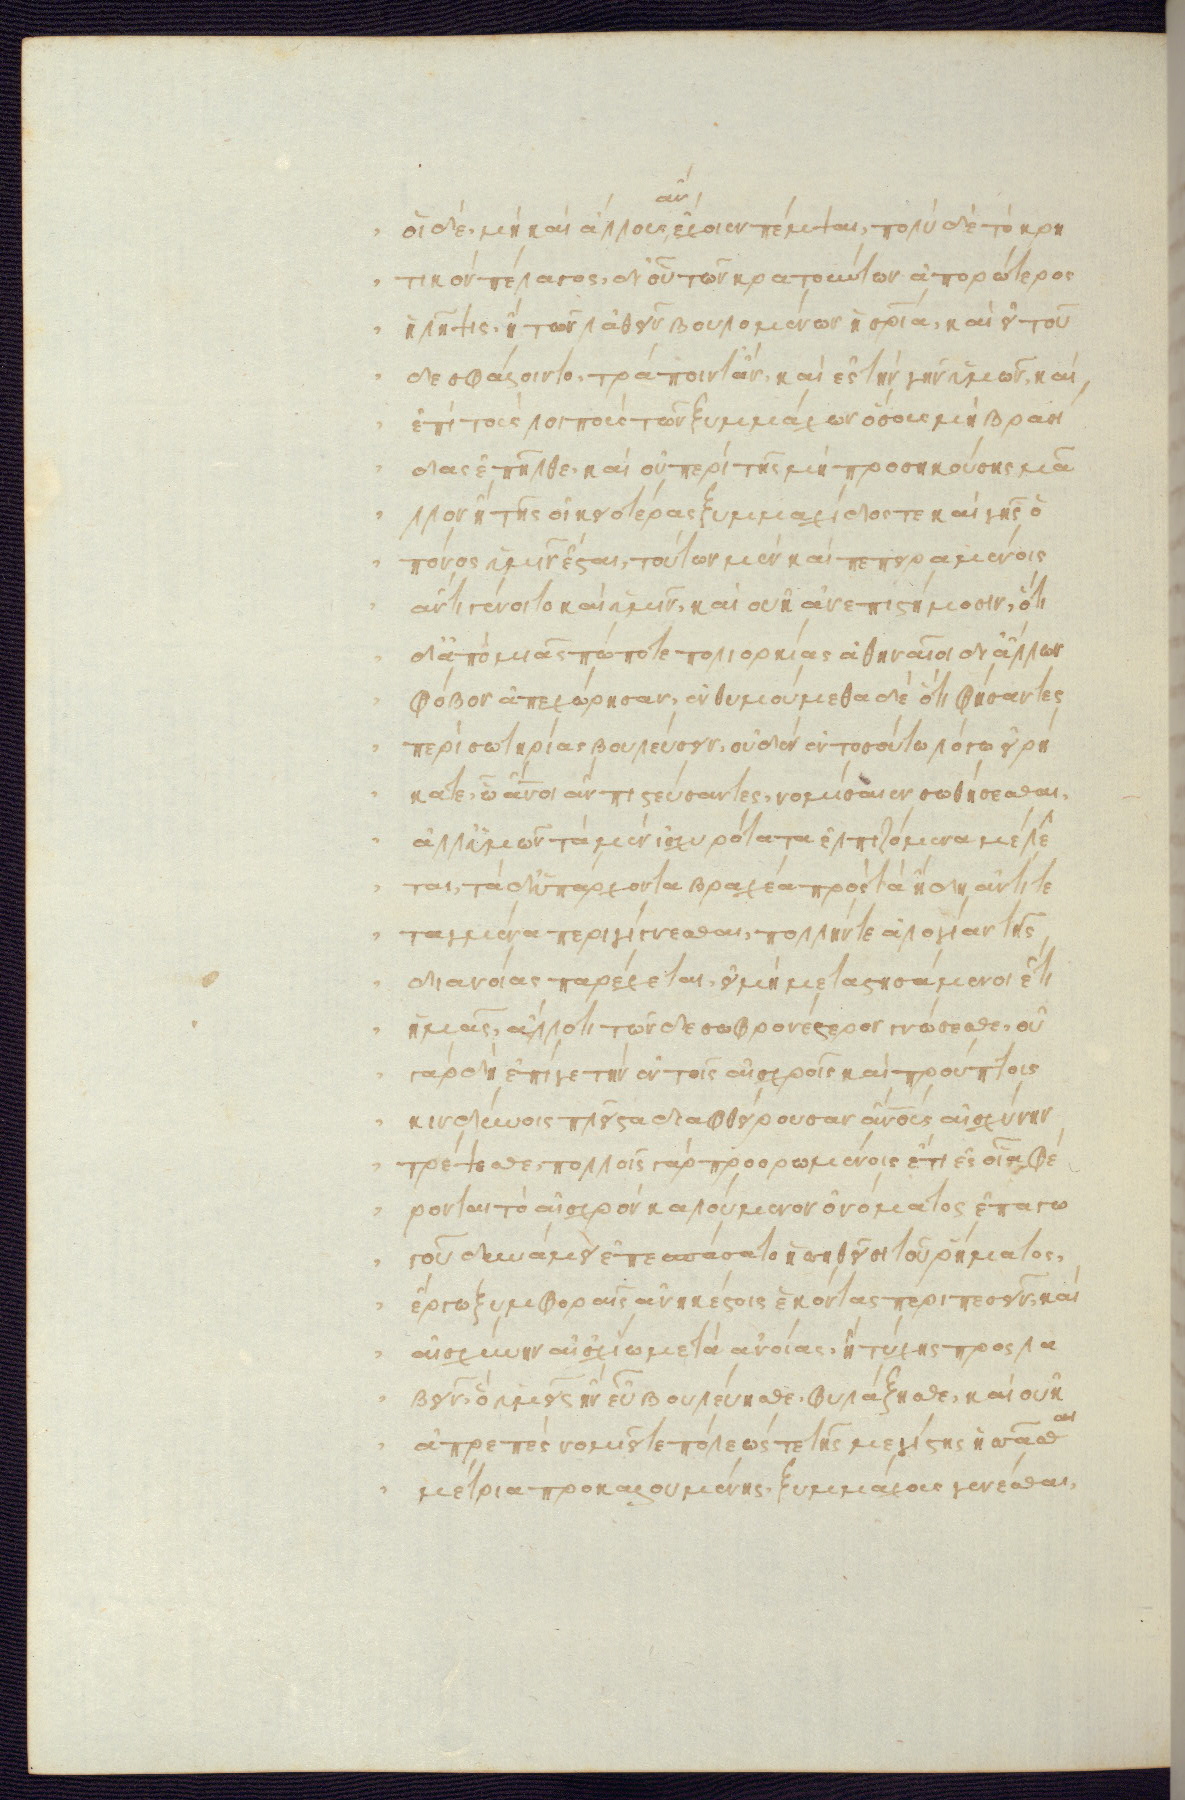 ἂν
οἱ δὲ, μὴν καὶ ἄλλους ἔχοιεν πέμψαι, πολὺ δὲ τὸ κρη
τικὸν πέλαγος, δι' οὗ τῶν κρατούντων ἀπορώτερος
ἡ λῆψις, ἢ τῶν λαθεῖν βουλομένων ἡ σωτηρία, καὶ εἰ τοῦ
δε σφάλοιντο, τράποιντ' ἂν, καὶ ἐς τὴν γῆν ὑμῶν, καὶ
ἐπὶ τοὺς λοιποὺς τῶν ξυμμάχων ὅσους μὴ βρασί
δας ἐπῆλθε, καὶ οὐ περὶ τῆς μὴ προσηκούσης μᾶ
λλον ἢ τῆς οἰκειοτέρας ξυμμαχίδος τε καὶ γῆς ὁ
πόνος ὑμῖν ἔσται, τούτων μὲν καὶ πεπειραμένοις
ἄν τι γένοιτο καὶ ὑμῖν, καὶ οὐκ ἀνεπιστήμοσιν, ὅτι
οὐδ' ἀπὸ μιᾶς πώποτε πολιορκίας ἀθηναῖοι δι' ἄλλων
φόβον ἀπεχώρησαν, ἐνθυμούμεθα δὲ ὅτι φήσαντες
περὶ σωτηρίας βουλεύσειν, οὐδὲν ἐν τοσούτω λόγω εἰρή
κατε, ὧ ἄνοι ἂν πιστεύσαντες, νομίσαιεν σωθήσεσθαι,
ἀλλ' ὑμῶν τὰ μὲν ἰσχυρότατα ἐλπιζόμενα μέλλε
ται, τὰ δ' ὑπάρχοντα βραχέα πρὸς τὰ ἤδη ἀντιτε
ταγμένα περιγίγνεσθαι, πολλήν τε ἀλογίαν τῆς
διανοίας παρέχεται, εἰ μὴ μεταστησάμενοι ἔτι
ἡμᾶς, ἄλλο τι τῶνδε σωφρονέστερον γνώσεσθε, οὐ
γὰρ δὴ ἐπί γε τὴν ἐν τοῖς αἰσχροῖς καὶ προύπτοις
κινδύνοις πλεῖστα διαφθείρουσαν ἀνους αἰσχύνην
τρέψεσθε, πολλοῖς γὰρ προορωμένοις ἔτι ἐς οἷα φέ
ρονται τὸ αἰσχρὸν καλούμενον ὀνόματος ἐπαγω
γοῦ δυνάμει ἐπεσπάσατο ἡσσηθεῖσι τοῦ ῥήματος,
ἔργω ξυμφοραῖς ἀνηκέστοις ἑκόντας περιπεσεῖν, καὶ
αἰσχύνην αἰσχίω μετὰ ἀνοίας, ἢ τύχης προσλα
βεῖν, ὃ ὑμεῖς ἢν εὖ βουλεύησθε, φυλάξησθε, καὶ οὐκ
ἀπρεπὲς νομιεῖτε πόλεώς τε τῆς μεγίστης ἡσσᾶσθαι
μέτρια προκαλουμένης, ξυμμάχους γενέσθαι,